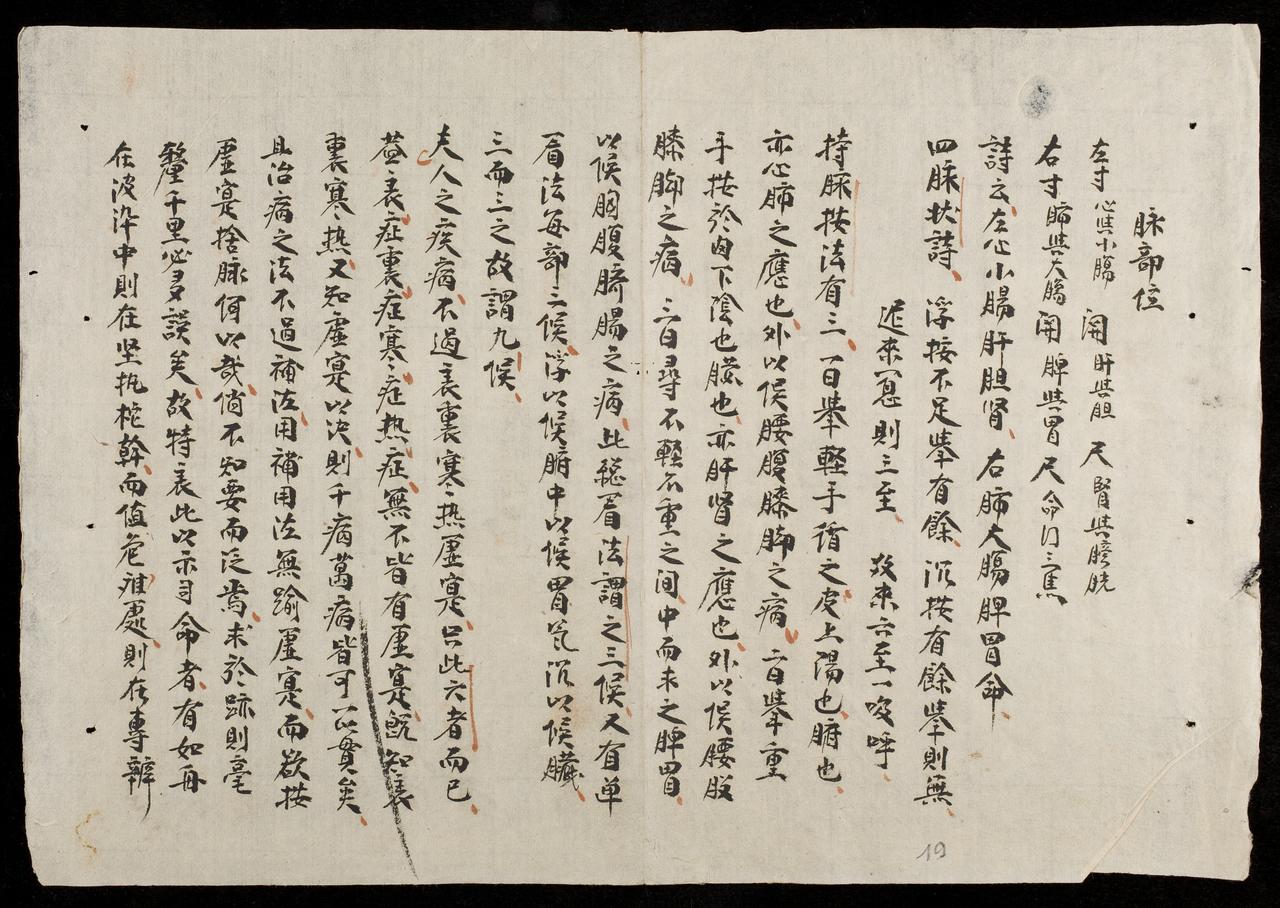 脉部位
左寸心與小腸 関肝與胆 尺腎與膀胱
右寸肺與大膓 関脾與胃 尺命门三焦
詩云左心小腸肝胆腎、右肺大腸脾胃命、
四脉状詩、浮按不足举有餘、沉按有餘举則無、
遲來一息則三至 数來六至一吸呼、
持脉按法有三、一曰举輕手循之皮上陽也、腑也、
亦心肺之應也、外以候腰腹膝脚之病、二曰举重
手按於肉下陰也臓也、亦肝腎之應也、外以候腰股
膝脚之病、三曰尋不輕不重之间、中而求之脾胃、
以候胸腹臍腸之病、此縂看法謂之三候、又有单
看法每部三候、浮以候腑中以候胃气沉以候臟、
三而三之故謂九候、
夫人之疾病、不過表裏寒〻热虚寔、只此六者而已、
葢表症裏症寒〻症热症、無不皆有虚寔、旣知表
裏寒〻热、又知虚寔以决、則千病萬病皆可一以貫矣、
且治病之法不過補泣、用補用泣無踰虚寔、而欲按
虚寔捨脉何以哉、倘不知要而泛焉、求於跡則毫
釐千里必多誤矣、故特表此以示司命者、有如舟
在波泍中則在坚执柁幹、而值危难處、則在專辦
19